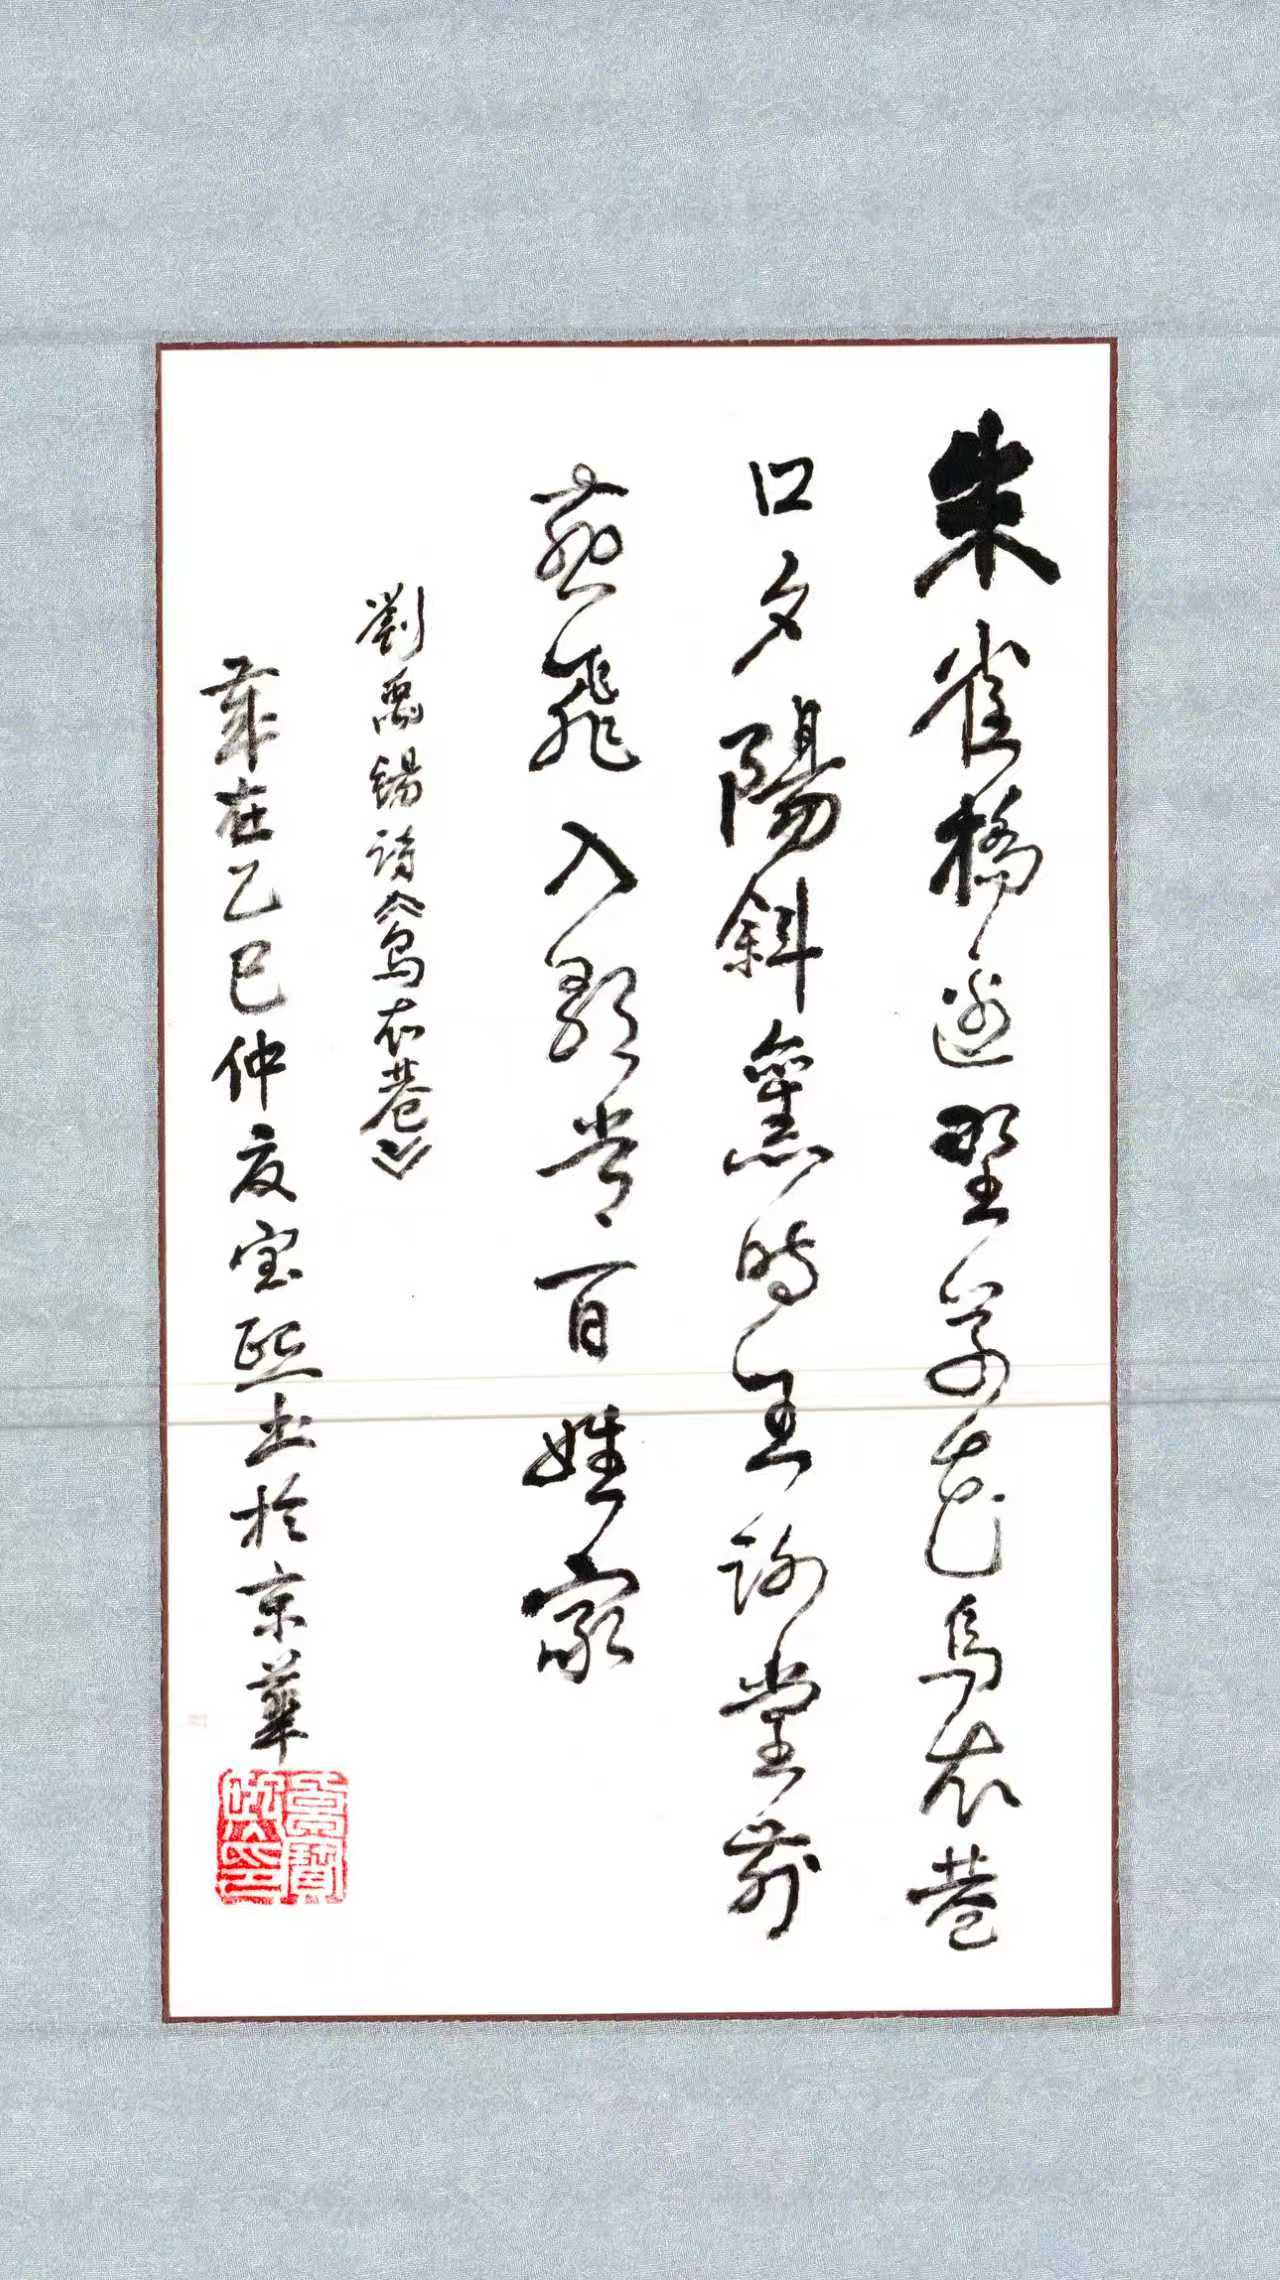 朱雀橋邊野草花烏衣巷
口夕陽斜舊時王謝堂前
燕飛入尋常百姓家
劉禹錫詩《烏衣巷》
歲在乙巳仲夏宝熙书於京華